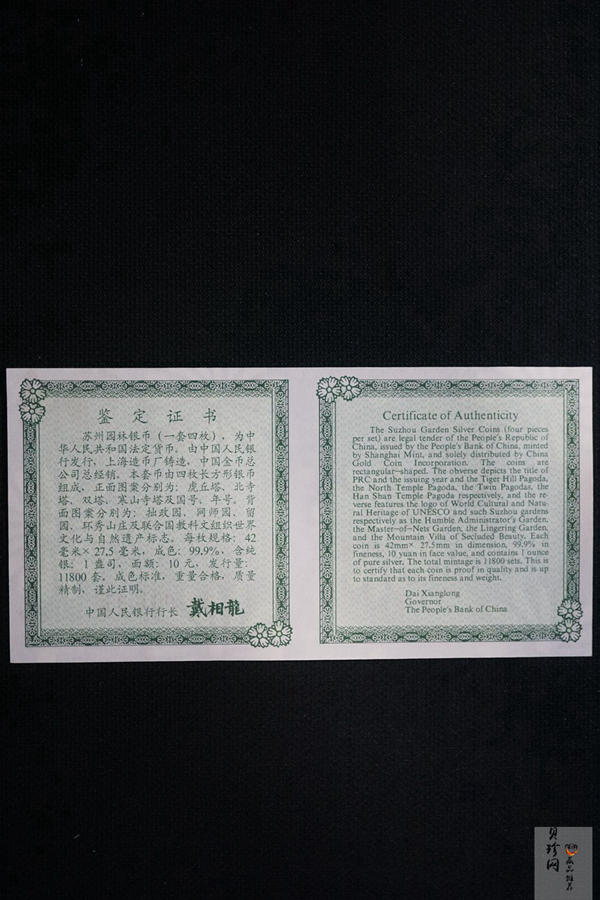 鉴定证书
苏州园林银币(一套四枚),为中
华人民共和国法定货币。由中国人民银
行发行,上海造币厂铸造,中国金币总
公司总经销。本套币由四枚长方形银币
组成,正面图案分别为:虎丘塔、北寺
塔、双塔、寒山寺塔及国号、年号。背
面图案分别为:拙政园、网师园、留
园、环秀山庄及联合国教科文组织世界
文化与自然遗产标志。每枚规格:42
毫米×27.5毫米,成色:99.9%,含纯
银:1盎司,面额:10元,发行量:
11800套,成色标准,重量合格,质量
精制,谨此证明。
中国人民银行行长 戴相龍
Certificate of Authenticity
The Suzhou Garden Silver Coins (four pieces
per set) are legal tender of the People's Republic of
China, issued by the People's Bank of China, minted
by Shanghai Mint, and solely distributed by China
Gold Coin Incorporation. The coins are
rectangular-shaped. The obverse depicts the title of
PRC and the issuing year and the Tiger Hill Pagoda,
the North Temple Pagoda, the Twin Pagodas, the
Han Shan Temple Pagoda respectively, and the re-
verse features the logo of World Cultural and Natu-
ral Heritage of UNESCO and such Suzhou gardens
respectively as the Humble Administrator's Garden,
the Master-of-Nets Garden, the Lingering Garden,
and the Mountain Villa of Secluded Beauty. Each
coin is 42mm× 27.5mm in dimension, 99.9% in
fineness, 10 yuan in face value, and contains 1 ounce
of pure silver. The total mintage is 11800 sets. This is
to certify that each coin is proof in quality and is up
to standard as to its fineness and weight.
Dai Xianglong
Governor
The People's Bank of China
贝珍网